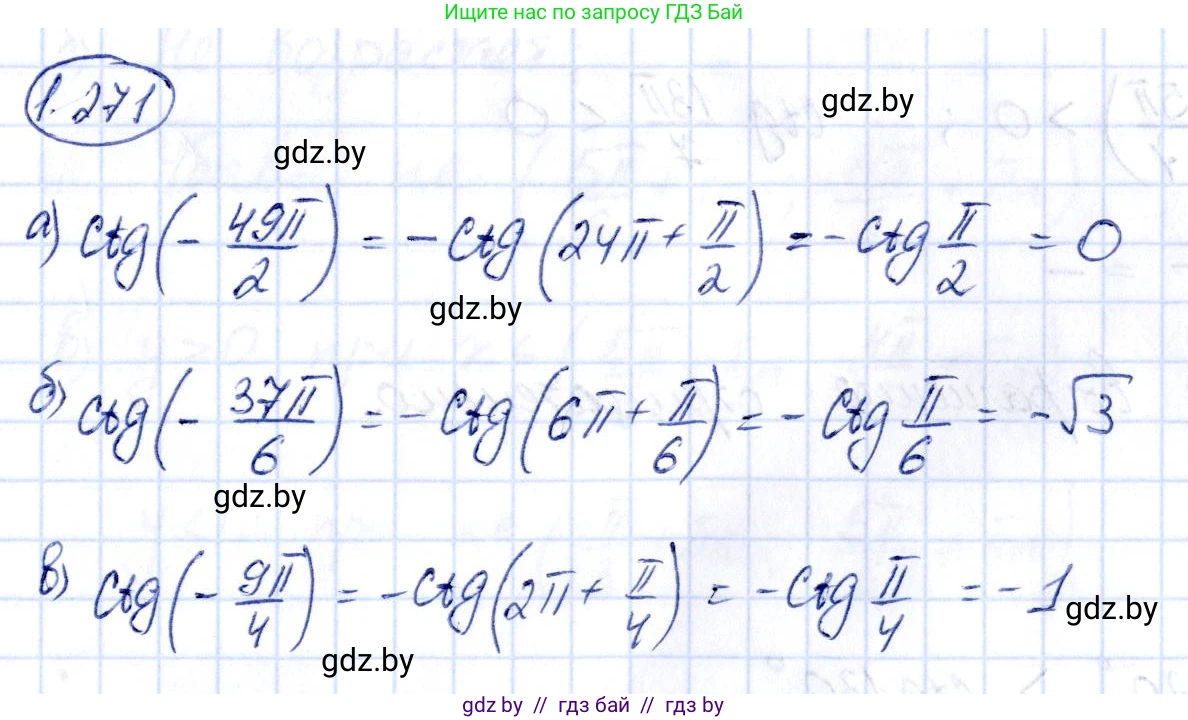 Ищите нас по запросу ГДЗ Бай
1.271
gdz.by
gdz.by
а) ctg(-49π/2) = -ctg(24π + π/2) = -ctg π/2 = 0
gdz.by
б) ctg(-37π/6) = -ctg(6π + π/6) = -ctg π/6 = -√3
gdz.by
в) ctg(-9π/4) = -ctg(2π + π/4) = -ctg π/4 = -1
gdz.by
gdz.by
gdz.by // гдз бай // gdz.by